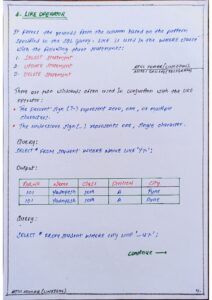 4. LIKE OPERATOR
It fetches the records from the column based on the pattern
specified in the SQL query. LIKE is used in the WHERE clause
with the following three statements:
1. SELECT statement
2. UPDATE statement
3. DELETE statement
ATUL KUMAR (LINKEDIN)
There are two wildcards often used in conjunction with the LIKE
operator:
• The percent sign (%) represent zero, one, or multiple
characters.
• The underscore sign (_) represents one, single character.
Query:
SELECT * FROM Student WHERE Name LIKE 'Y%';
Output:
Name Class Division City
101 Yashpesh 10th A Pune
101 Yashpesh 10th A Pune
Query:
SELECT * FROM Student WHERE City LIKE
Continue →
ATUL KUMAR (LINKEDIN)